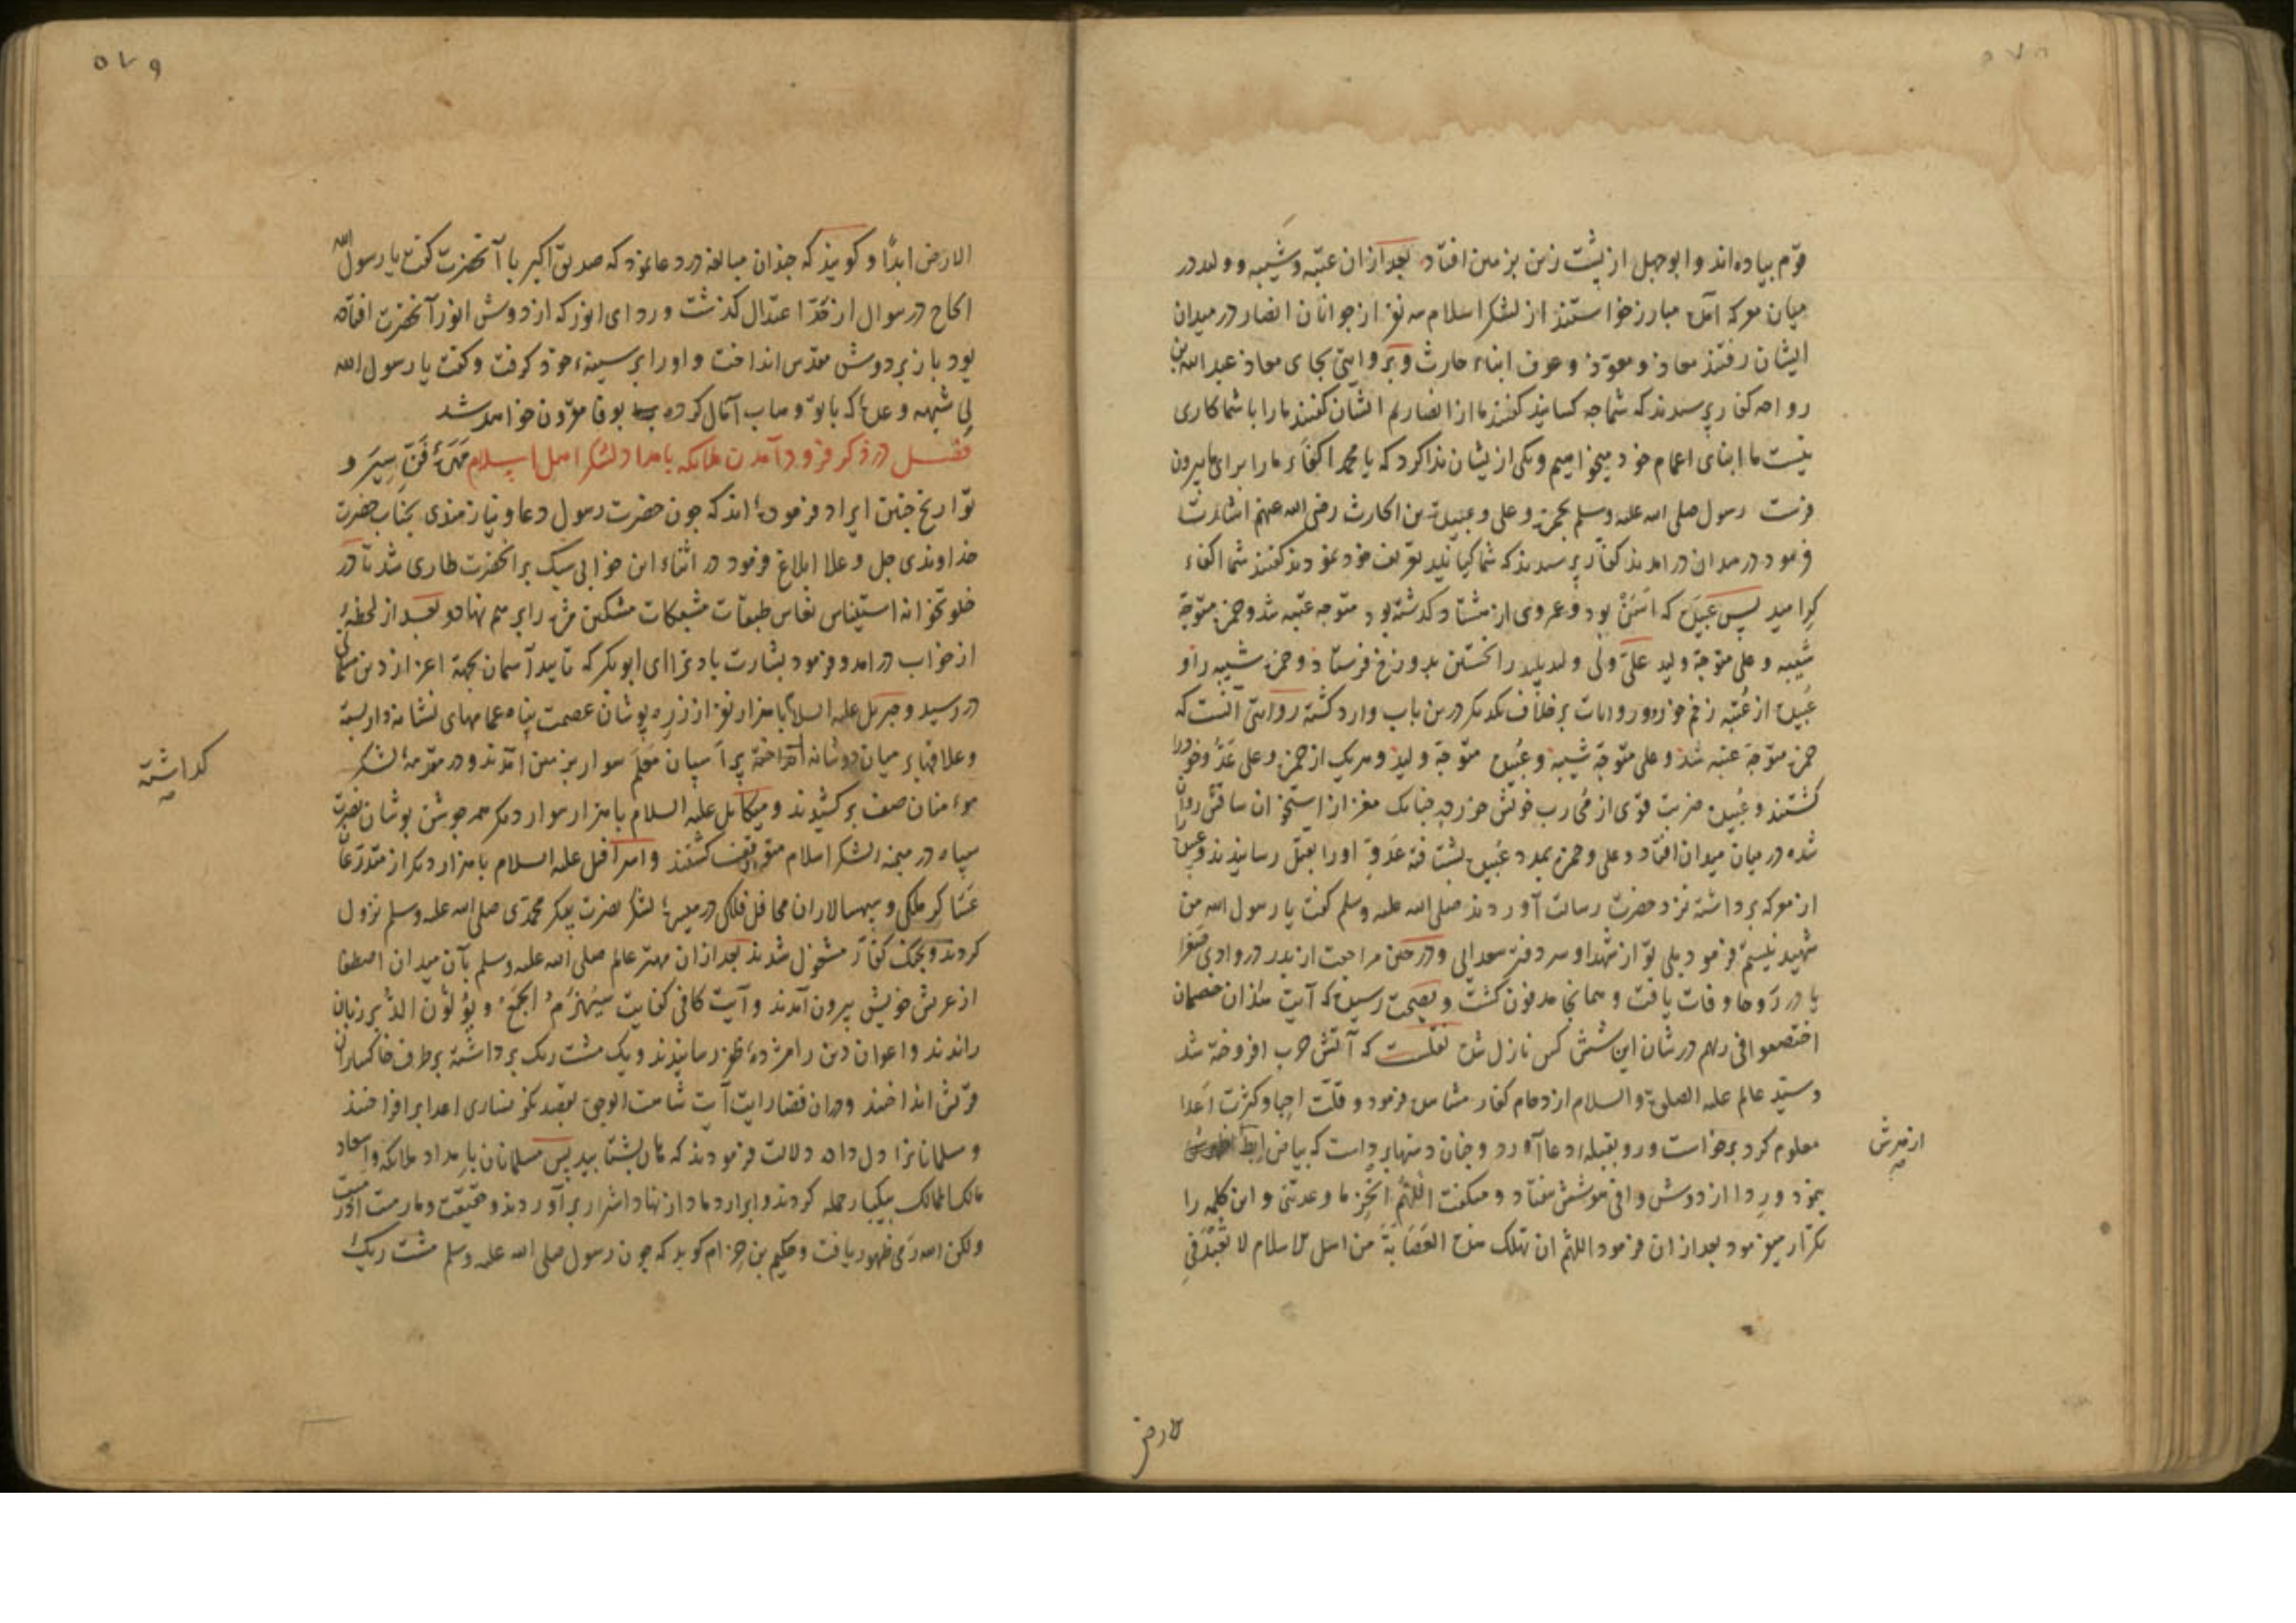 قوم پیاده‌اند و ابوجهل از پشت زین بر زمین افتاد بعد از آن عتبه و شیبه و ولید در
میان معرکه آمده مبارز خواستند از لشکر اسلام سه نفر از جوانان انصار در میدان
ایشان رفتند معاذ و معوذ و عوف ابناء حارث و بروایتی بجای معاذ عبدالله بن
رواحه کفار پرسیدند که شما چه کسانید گفتند ما از انصاریم ایشان گفتند ما را با شما کاری
نیست ما ابنای اعمام خود میخواهیم و یکی از یشان ندا کرد که یا محمد اکفاء ما را برای ما بیرون
فرست رسول صلی الله علیه وسلم بحمزه و علی و عبیده بن الحارث رضی الله عنهم اشارت
فرمود در میدان در امدند کفار پرسیدند که شما کیانید تعریف خود نمودند گفتند شما اکفاء
کرامید پس عبیده که اسن بود و عمر وی از هشتاد کذشته بود متوجه عتبه شد و حمزه متوجه
شیبه و علی متوجه ولید علی ولی ولید پلید را نخستین بدوزخ فرستاد و حمزه شیبه را و
عبیده از عتبه زخم خورد و روایات بر خلاف یکدیکر درین باب وارد کشته روایتی آنست که
حمزه متوجه عتبه شد و علی متوجه شیبه و عبیده متوجه ولید و هر یک از حمزه و علی عدو خود را
کشتند و عبیده ضربت قوی از محارب خویش خورد چنانک مغز از استخوان ساقش روان
شده در میان میدان افتاد و علی و حمزه بمدد عبیده بشتافته عدو او را بقتل رسانیدند و عبیده را
از معرکه برداشته نزد حضرت رسالت آوردند صلی الله علیه وسلم کفت یا رسول الله من
شهید نیستم فرمود بلی تو از شهدا و سر دفتر سعدایی و در حین مراجعت از بدر در وادی صفرا
یا در روحا وفات یافت و همانجا مدفون کشت و بصحت رسیده که آیت هذان خصمان
اختصموا فی ربهم در شان این شش کس نازل شده نقلست که آتش حرب افروخته شد
و سید عالم علیه الصلوة والسلام ازدحام کفار مشاهده فرمود و قلت احبا و کثرت اعدا
معلوم کرد برخواست و رو بقبله دعا آورد و چنان دستها برداشت که بیاض ابط
بنمود و ردا از دوش وافی هوشش بیفتاد و میکفت اللهم انجز ما وعدتنی و این کلمه را
تکرار میفرمود بعد از آن فرمود اللهم ان تهلک هذه العصابة من اهل الاسلام لا تعبد فی
ازهرش
الارض
۵۷۹
الارض ابدا و کویند که چندان مبالغه در دعا نمود که صدیق اکبر با آنحضرت کفت یا رسول الله
الحاح در سوال از حد اعتدال کذشت و ردای انور که از دوش انور آنحضرت افتاده
بود باز بر دوش مقدس انداخت و او را بر سینه خود کرفت و کفت یا رسول الله
بی شبهه وعده که با تو وهاب آمال کرده بوفا مقرون خواهد شد
فصل در ذکر فرود آمدن ملائکه بامداد لشکر اهل اسلام مهرۀ فن سیر و
تواریخ چنین ایراد فرموده‌اند که چون حضرت رسول دعا و نیازمندی بجناب حضرت
خداوندی جل و علا ابلاغ فرمود در اثناء این خوابی سبک بر انحضرت طاری شد تا در
خلوتخوانه استیناس نعاس طبقات مشبکات مشکین مژه را بر هم نهاد و بعد از لحظه‌ء
از خواب در امد و فرمود بشارت باد ترا ای ابوبکر که تایید آسمان بجهة اعزاز دین مسلمانی
در رسید و جبرئیل علیه السلام با هزار نفر از زره پوشان عصمت پناه عمامهای نشانه‌دار بسته
و علاقها بر میان دو شانه انداخته بر آسپان معلم سوار بر زمین آمدند و در مقدمه لشکر
مومنان صف بر کشیدند و میکائیل علیه السلام با هزار سوار دیکر همه جوشن پوشان نصرت
سپاه در میمنه لشکر اسلام متوقف کشتند و اسرافیل علیه السلام با هزار دیکر از متدرعان
عساکر ملکی و سپهسالاران محافل فلکی در میسره لشکر نصرت پیکر محمدی صلی الله علیه وسلم نزول
کردند و بجنک کفار مشغول شدند بعد از آن مهتر عالم صلی الله علیه وسلم بآن میدان اصطفا
از عرش خویش بیرون آمدند و آیت کافی کفایت سیهزم الجمع و یولون الدبر بر زبان
راندند و اعوان دین را مژده ظفر رسانیدند و یک مشت ریک برداشته بر طرف خاکساران
قریش انداختند و دران فضا رایت آیت شاهت الوجوه بقصد نکونساری اعدا بر افراختند
و مسلمانانرا دل داده دلالت فرمودند که هان بشتابید پس مسلمانان بامداد ملائکه و اسعاد
مالک الممالک بیکبار حمله کردند و ابرار دمار از نهاد اشرار بر آوردند و حقیقت و ما رمیت اذ رمیت
ولکن الله رمی ظهور یافت و حکیم بن حزام کوید که چون رسول صلی الله علیه وسلم مشت ریک
کداشته